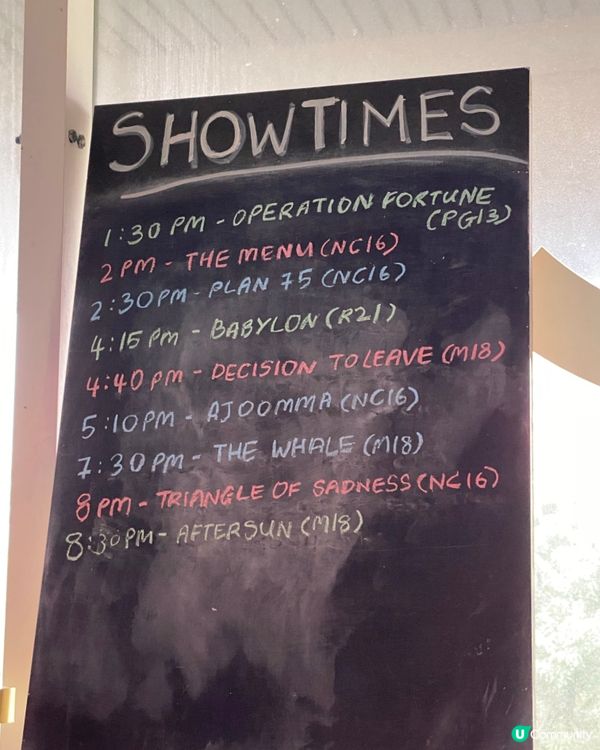 SHOWTIMES
1:30 PM - OPERATION FORTUNE
(PG13)
2 PM - THE MENU (NC16)
2:30PM - PLAN 75 (NC16)
4:15 PM - BABYLON (R21)
4:40 PM - DECISION TO LEAVE (M18)
5:10PM - AJOOMMA (NC16)
7:30PM - THE WHALE (M18)
8PM - TRIANGLE OF SADNESS (NC16)
8:30PM - AFTERSUN (M18)
U Community